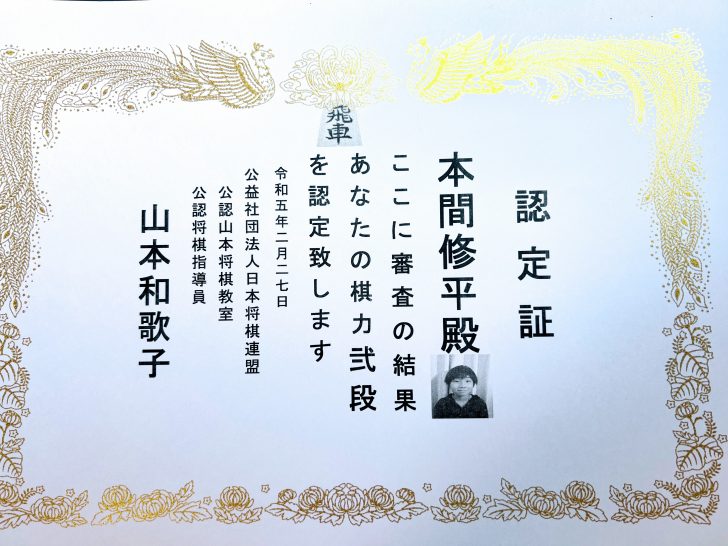 飛車
認定証
本間修平殿
ここに審査の結果
あなたの棋力弐段
を認定致します
令和五年二月二七日
公益社団法人日本将棋連盟
公認山本将棋教室
公認将棋指導員
山本和歌子